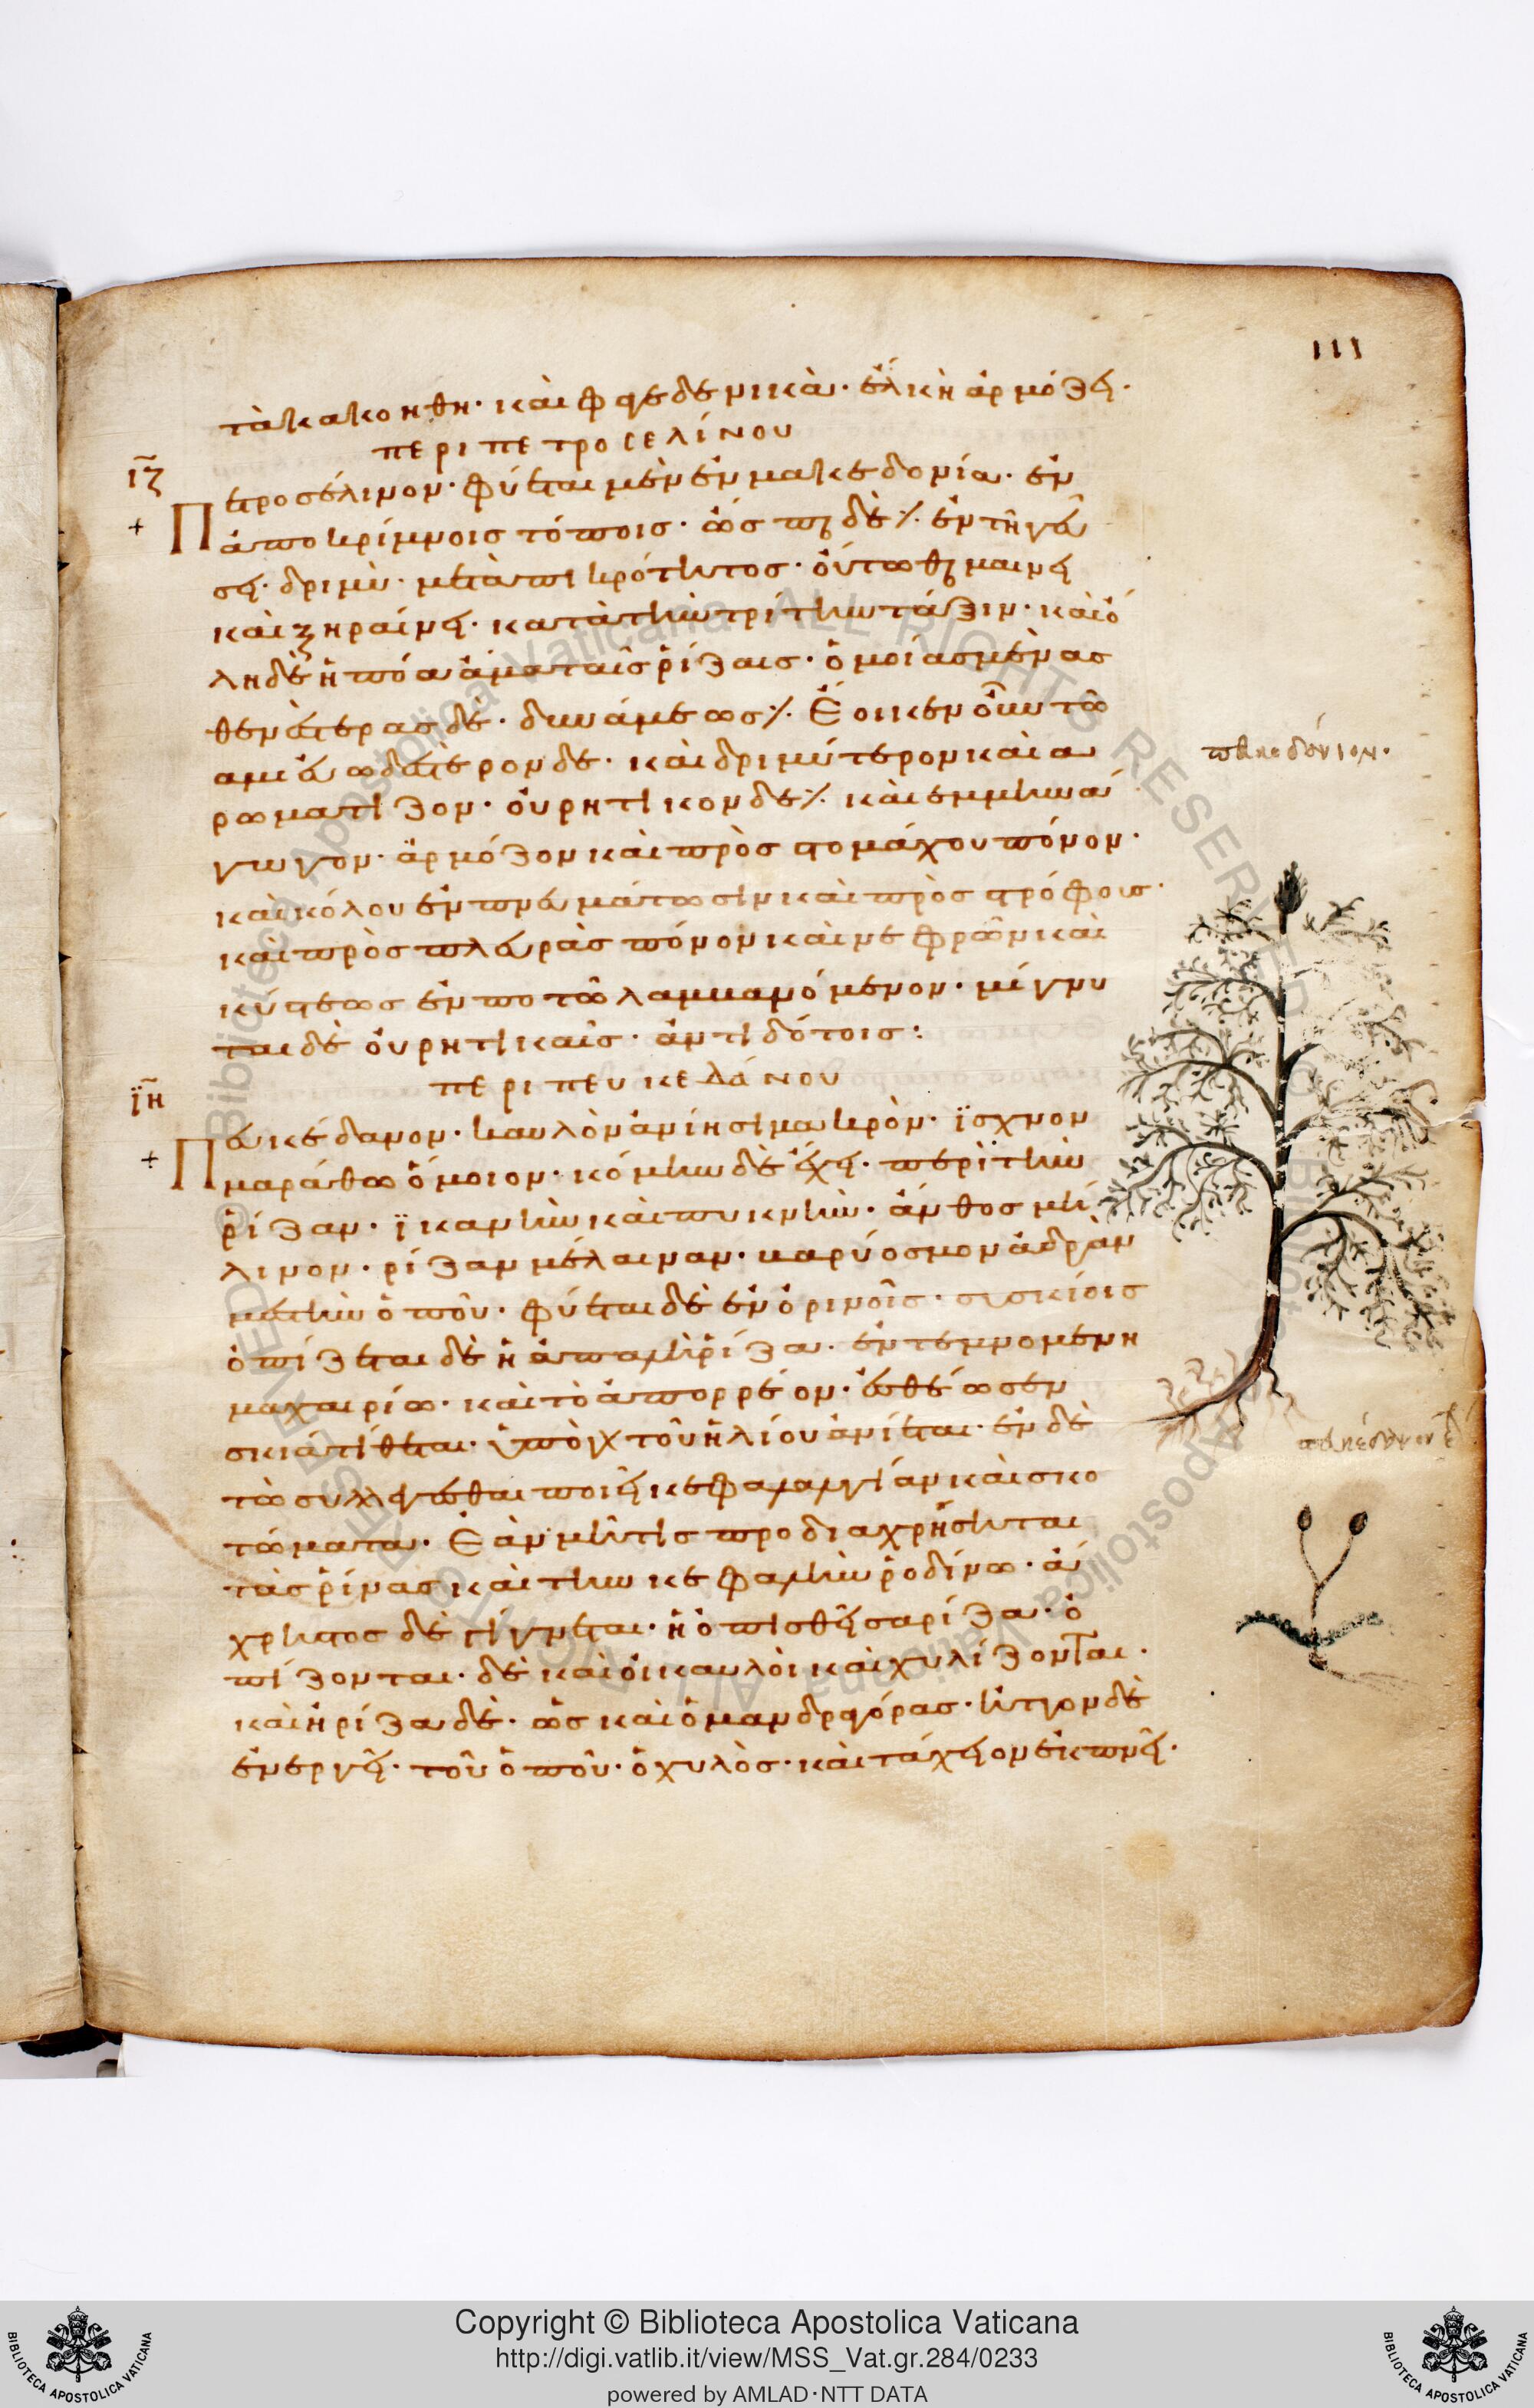 111
τὰ κακοήθη· καὶ φαγεδενικὰ· ἕλκη ἁρμόζει·
περι πετροσελίνου
ιζ
Πετροσέλινον· φύεται μὲν ἐν μακεδονία· ἐν
ἀποκρίμνοις τόποις· ἐν τῆ γεύ
σει· δριμὺ· μετὰ πικρότητος· οὕτω θερμαίνει
καὶ ξηραίνει· κατὰ τὴν τρίτην τάξιν· καὶ ὅ
λη δὲ ἡ πόα ἅμα ταῖς ῥίζαις· ὁμοίας μὲν ἀσ
θενέστερας δὲ· δυνάμεως ⁒ Ἔοικεν οὖν τῶ
ἄμει εὐωδέστερον δὲ· καὶ δριμύτερον καὶ ἀ
ρωματίζον· οὐρητικὸν δὲ ⁒ καὶ ἐμμήνα
γωγον· ἁρμόζον καὶ πρὸς στομάχου πόνον·
καὶ κόλου ἐμπνευμάτωσιν καὶ πρὸς στρόφους·
καὶ πρὸς πλευρὰς πόνον καὶ νεφρῶν καὶ
κύστεως ἐν ποτῶ λαμβανόμενον· μίγνυ
ται δὲ οὐρητικαῖς· ἀντιδότοις:
περι πευκεδάνου
ιη
Πευκέδανον· καυλὸν ἀνίησι μακρὸν· ἰσχνὸν
μαράθω ὅμοιον· κόμην δὲ ἔχει· περὶ τὴν
ῥίζαν· ἱκανὴν καὶ πυκνὴν· ἄνθος μή
λινον· ῥίζαν μέλαιναν· βαρύοσμον ἁδρὰν
μεστὴν ὀποῦ· φύεται δὲ ἐν ὀρινοῖς· συσκίοις
ὀπίζεται δὲ ἡ ἁπαλὴ ῥίζα· ἐντεμνομένη
μαχαιρίω· καὶ τὸ ἀπορρέον· εὐθέως ἐν
σκιᾶ τίθεται· ὑπὸ γὰρ τοῦ ἡλίου ἀνίεται· ἐν δὲ
τῶ συλλέγεσθαι ποιεῖ κεφαλαλγίαν καὶ σκο
τώματα· Ἐὰν μή τις προδιαχρήσηται
τὰς ῥίνας καὶ τὴν κεφαλὴν ῥοδίνω· ἄ
χρηστος δὲ γίγνεται· ἡ ὀπισθεῖσα ῥίζα· ὀ
πίζονται· δὲ καὶ οἱ καυλοὶ καὶ χυλίζονται·
καὶ ἡ ῥίζα δὲ· ὡς καὶ ὁ μανδραγόρας· ἧττον δὲ
ἐνεργεῖ· τοῦ ὀποῦ· ὁ χυλὸς· καὶ τάχειον ἐκπνεῖ·
Copyright © Biblioteca Apostolica Vaticana
http://digi.vatlib.it/view/MSS_Vat.gr.284/0233
powered by AMLAD·NTT DATA
BIBLIOTECA APOSTOLICA VATICANA
BIBLIOTECA APOSTOLICA VATICANA